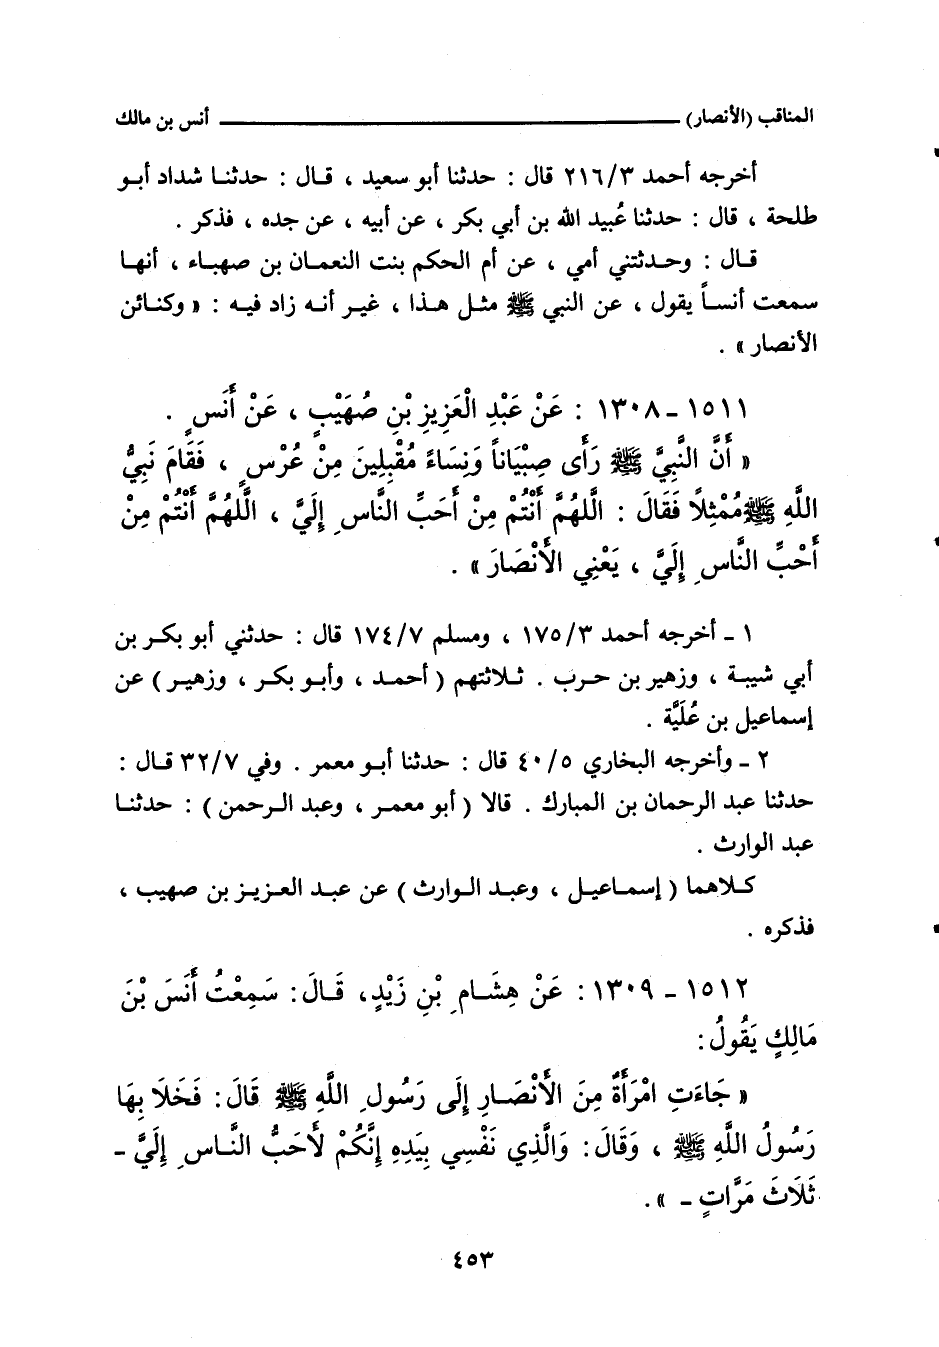 المناقب (الأنصار) ــــــــــــــــــــــــــــــــــــــــ أنس بن مالك
أخرجه أحمد ٢١٦/٣ قال : حدثنا أبو سعيد ، قال : حدثنا شداد أبو
طلحة ، قال : حدثنا عُبيد الله بن أبي بكر ، عن أبيه ، عن جده ، فذكر .
قال : وحدثتني أمي ، عن أم الحكم بنت النعمان بن صهباء ، أنها
سمعت أنساً يقول ، عن النبي ﷺ مثل هذا ، غير أنه زاد فيه : « وكنائن
الأنصار » .
١٥١١ - ١٣٠٨ : عَنْ عَبْدِ الْعَزِيزِ بْنِ صُهَيْبٍ ، عَنْ أَنَسٍ .
« أَنَّ النَّبِيَّ ﷺ رَأَى صِبْيَاناً وَنِسَاءً مُقْبِلِينَ مِنْ عُرْسٍ ، فَقَامَ نَبِيُّ
اللَّهِ ﷺ مُمْثِلاً فَقَالَ : الَّلهُمَّ أَنْتُمْ مِنْ أَحَبِّ النَّاسِ إِلَيَّ ، الَّلهُمَّ أَنْتُمْ مِنْ
أَحْبِّ النَّاسِ إِلَيَّ ، يَعْنِي الأَنْصَارَ » .
١ - أخرجه أحمد ١٧٥/٣ ، ومسلم ١٧٤/٧ قال : حدثني أبو بكر بن
أبي شيبة ، وزهير بن حرب . ثلاثتهم ( أحمد ، وأبو بكر ، وزهير ) عن
إسماعيل بن عُلَيَّة .
٢ - وأخرجه البخاري ٤٠/٥ قال : حدثنا أبو معمر . وفي ٣٢/٧ قال :
حدثنا عبد الرحمان بن المبارك . قالا ( أبو معمر ، وعبد الرحمن ) : حدثنا
عبد الوارث .
كلاهما ( إسماعيل ، وعبد الوارث ) عن عبد العزيز بن صهيب ،
فذكره .
١٥١٢ - ١٣٠٩ : عَنْ هِشَامِ بْنِ زَيْدٍ، قَالَ : سَمِعْتُ أَنَسَ بْنَ
مَالِكٍ يَقُولُ :
« جَاءَتِ امْرَأَةٌ مِنَ الأَنْصَارِ إِلَى رَسُولِ اللَّهِ ﷺ قَالَ : فَخَلَا بِهَا
رَسُولُ اللَّهِ ﷺ ، وَقَالَ : وَالَّذِي نَفْسِي بِيَدِهِ إِنَّكُمْ لأَحَبُّ النَّاسِ إِلَيَّ -
ثَلَاثَ مَرَّاتٍ - » .
٤٥٣